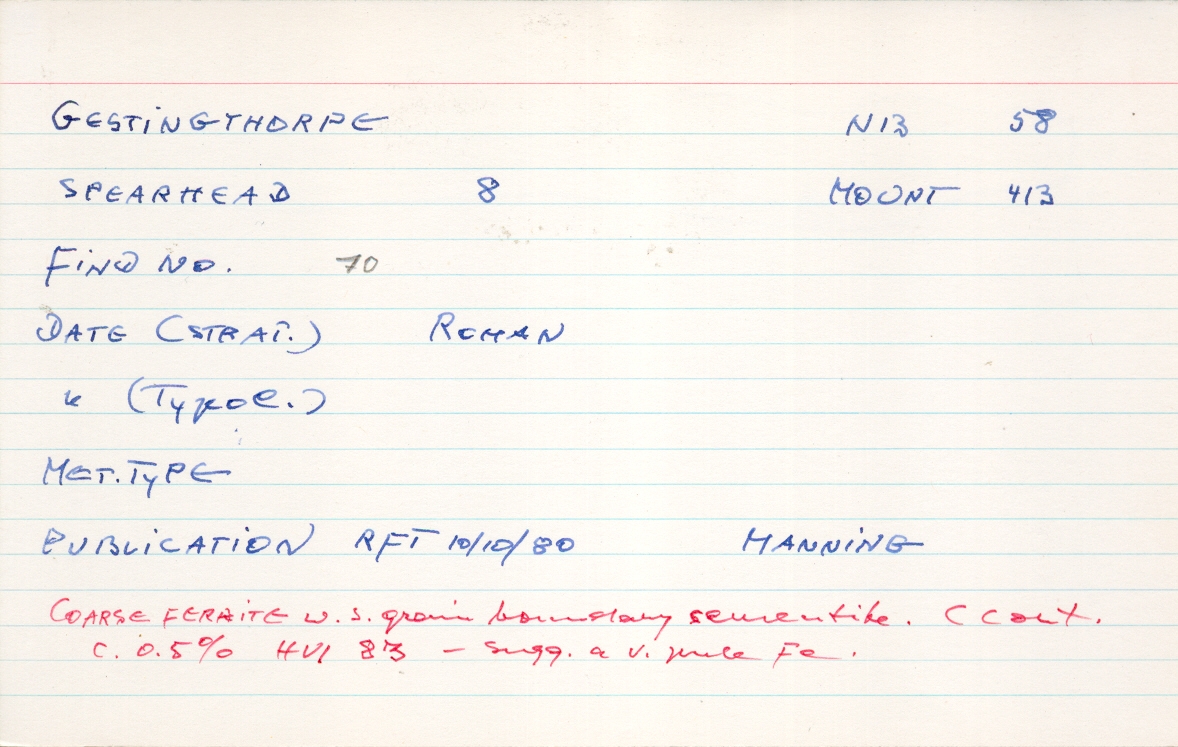 GESTINGTHORPE N13 58
SPEARHEAD 8 MOUNT 413
FIND NO. 70
DATE (STRAT.) ROMAN
" (TYPOL.)
MET. TYPE
PUBLICATION RFT 10/10/80 MANNING
COARSE FERRITE w. s. grain boundary cementite. C cont.
c. 0.5% HV1 83 – sugg. a v. pure Fe.